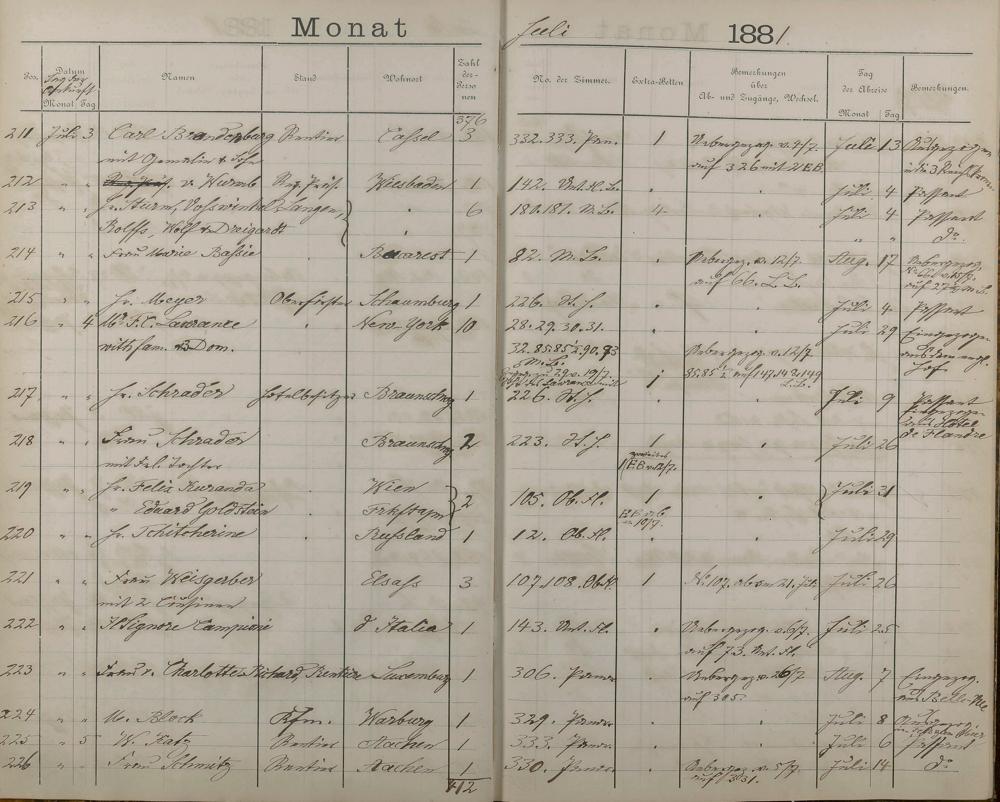 Monat Juli 1881.
Pos. Datum Namen Stand Wohnort Zahl der Personen No. der Zimmer. Extra-Betten Bemerkungen über Ab- und Zugänge, Wechsel. Tag der Abreise Bemerkungen.
Monat Tag Monat Tag
376
211 Juli 3 Carl Brandenburg Rentier Cassel 3 332.333. Pan. 1 Uebergezog. v. 4/7. Juli 13 Ausgezogen
mit Gemalin & Sohn auf 326 mit 2 EB.
212 " " v. Wurmb Reg. Präs. Wiesbaden 1 142. Unt. H. Juli 4 Passant
213 " " Hr. Sturm, Vosswinkel, Langen, " 6 180.181. M.B. 4 Juli 4 Passant
Rolffs, Wolf & " " do.
214 " " Frau Marie Bassie Bucarest 1 82. M.B. Uebergez. v. 12/7. Aug. 17 Uebergezog.
auf 66. L.B.
215 " " Hr. Meyer Oberförster Schaumburg 1 226. Juli 4 Passant
216 " 4 Mr. F.C. Lawrance New-York 10 28.29.30.31. Juli 29 Eingezog.
with fam. & 3 Dom. 32.85.85½.90.93 Uebergezog. v. 12/7 aus dem engl.
85.85½ auf 147.148.149 Hof.
217 " " Hr. Schrader Hotelbesitzer Braunschwg 1 226. Juli 9 Passant
Hotel
218 Frau Schrader Braunschwg 2 223. 1 Juli 26 de Flandre
mit Frl. Tochter
219 " " Hr. Felix Kuranda Wien 2 105. Ob. Fl. 1 Juli 21
" Eduard Goldstein Frkft a/m
220 " " Hr. Tchitcherine Russland 1 12. Ob. Fl. Juli 29
221 " " Frau Weisgerber Elsass 3 107.108. Ob. Fl. 1 No. 107. ab am 21. Juli Juli 26
mit 2 Cousinen
222 " " Il Signore Campioni d'Italia 1 143. Unt. Fl. Uebergezog. v. 6/7. Juli 25
auf 73. Unt. Fl.
223 " " Frau v. Charlotte Richard Rentière Luxemburg 1 306. Panor. Uebergezog. v. 26/7 Aug. 7 Eingezog.
auf 305. aus Belle-Vue
224 " " M. Block Kfm. Warburg 1 329. Panor. Juli 8 Ausgezog.
225 " 5 W. Katz Rentier Aachen 1 333. Panor. Juli 6 Passant
226 " " Frau Schmitz Rentier Aachen 1 330. Panor. Uebergezog. v. 5/7. Juli 14 do.
auf 331.
412